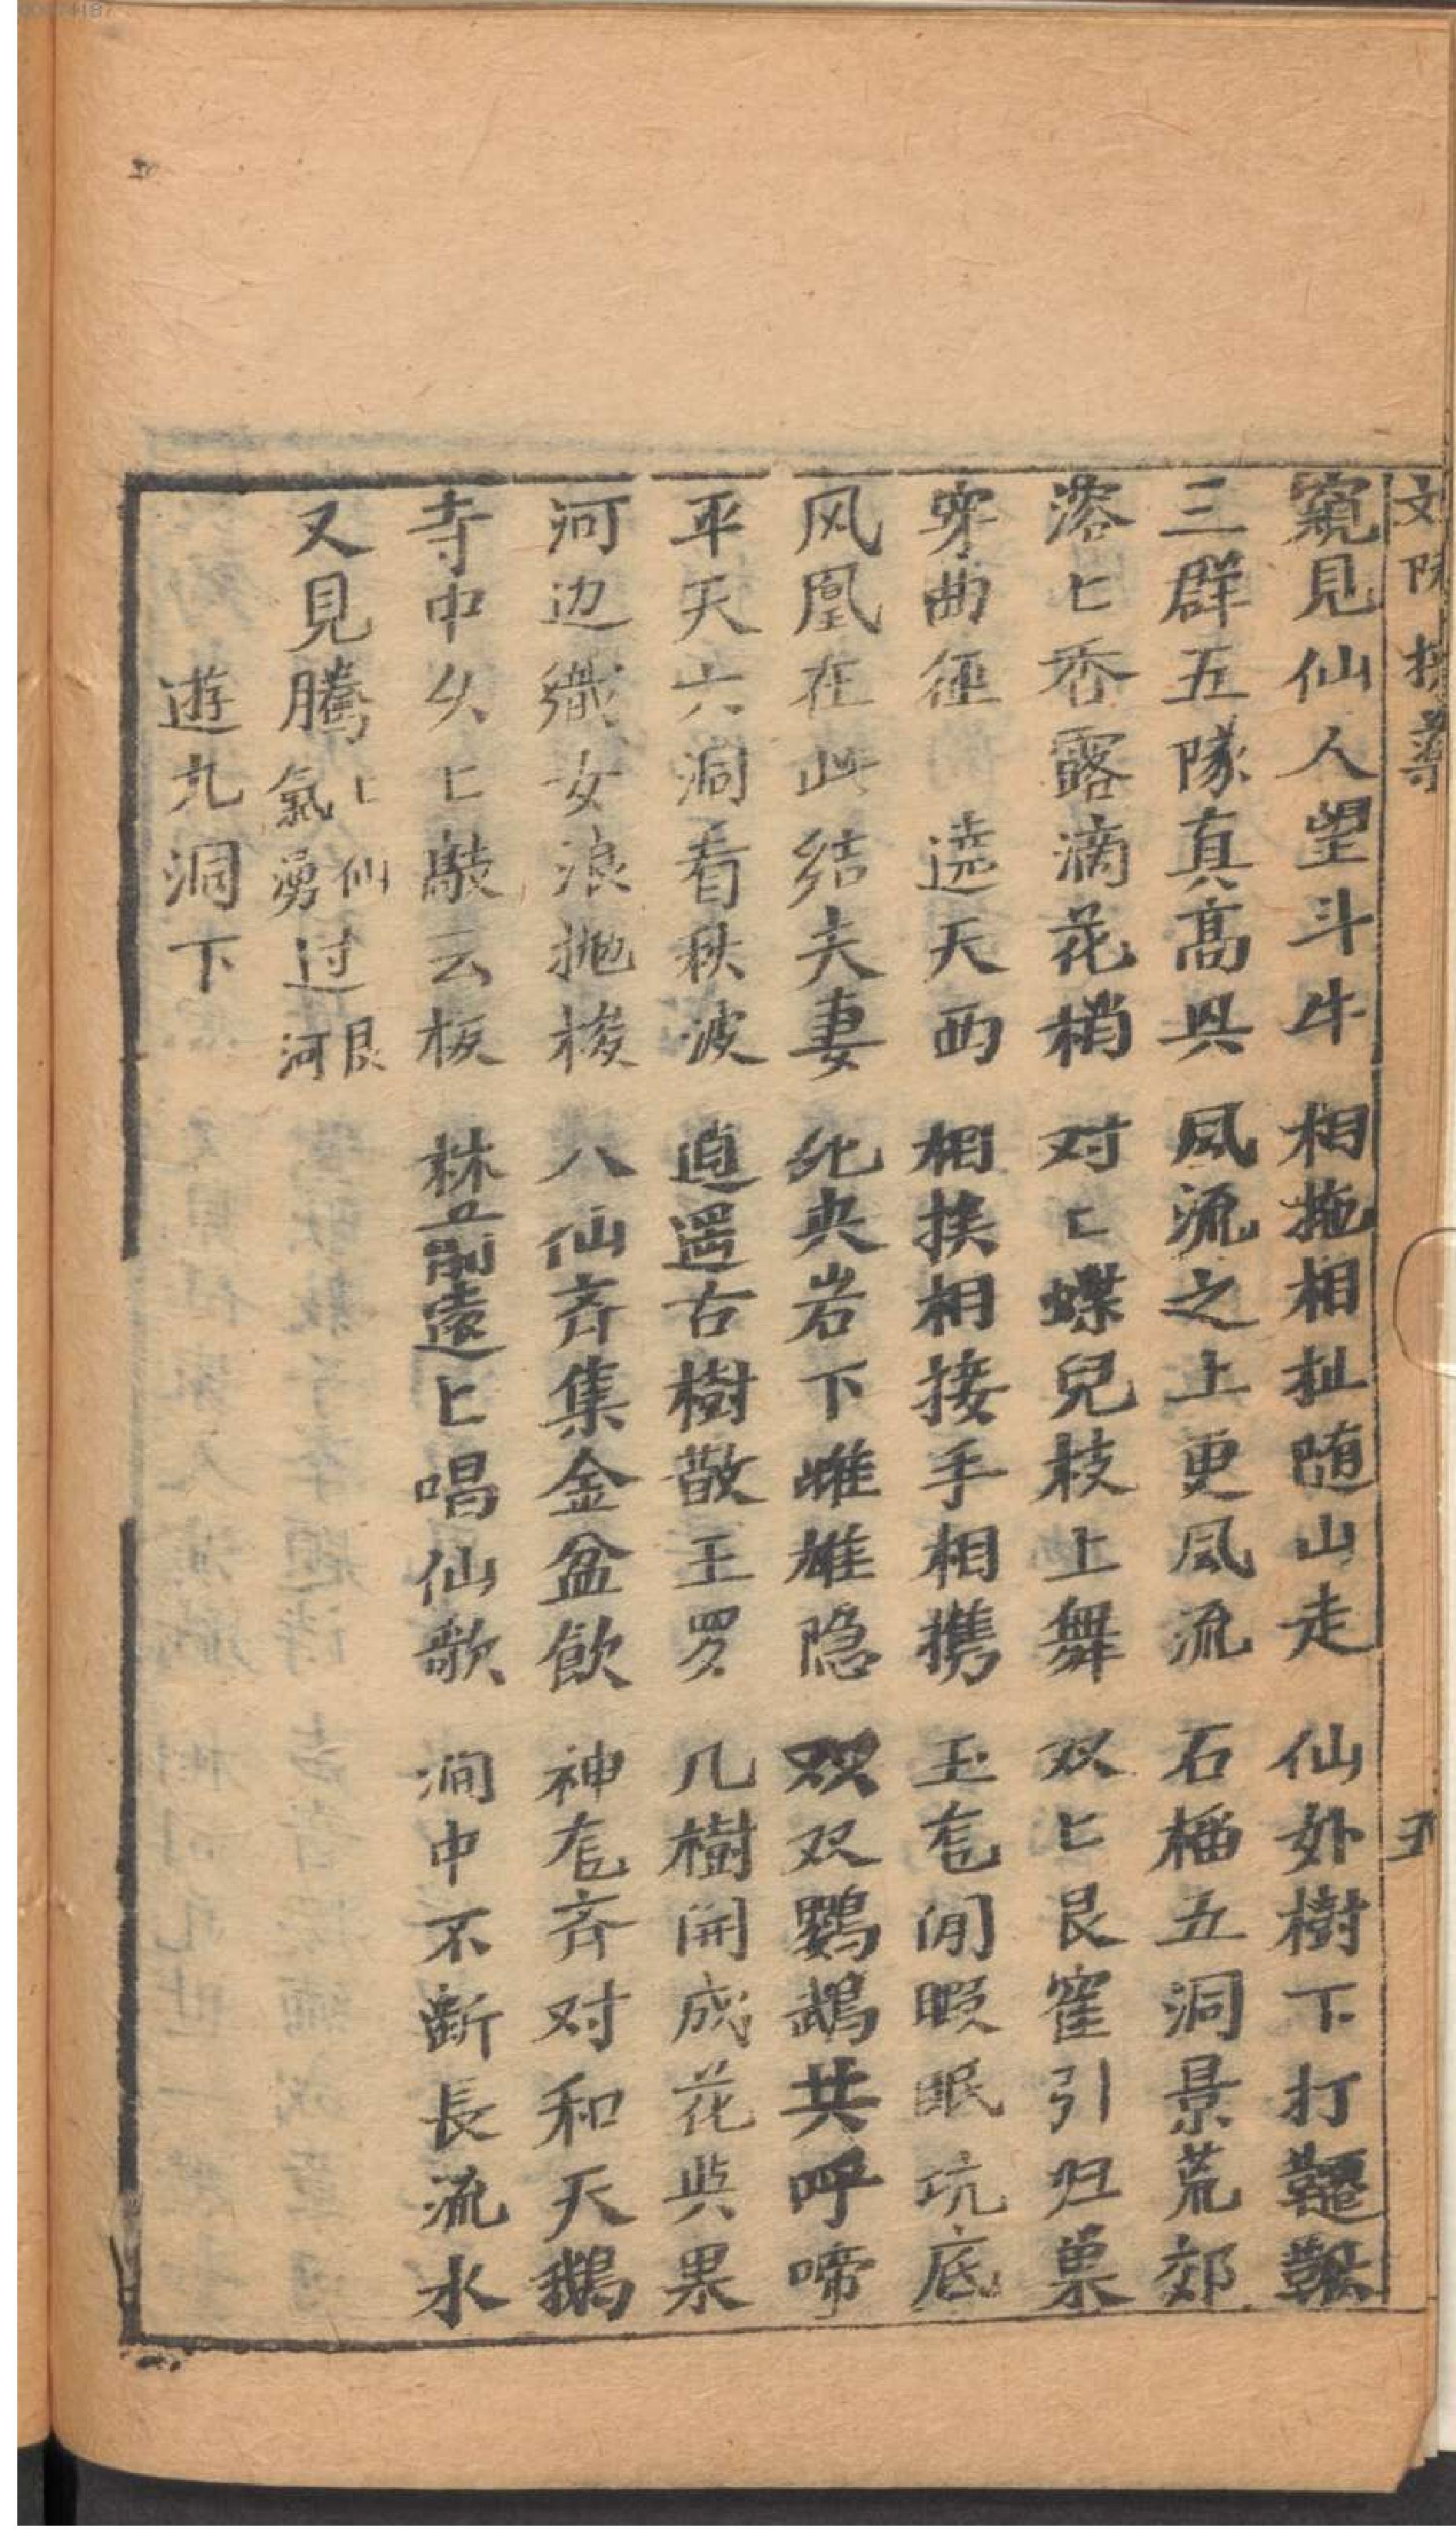 窺見仙人望斗牛 相拖相扯随山走 仙外樹下打韆鞦
三群五隊真髙興 風流之上更風流 石榴五洞景荒郊
溶匕香露滴花梢 对匕蝶兒枝上舞 双匕艮窖引归巢
穿曲徑 遶天西 相挨相接手相携 玉苞閒暇眠坑底
风凰在此結夫妻 央岩下雌雄隐 双双鸚鵡共呼啼
平天六洞看秋波 逍遥古樹敬王罗 几樹開成花與果
河边織女浪抛梭 八仙斉集金盆飲 神苞斉对和天鵝
寺中久匕敲云板 林前遠匕唱仙歌 澗中不断長流水
又見騰匕仙氣湧过艮河
遊九洞下